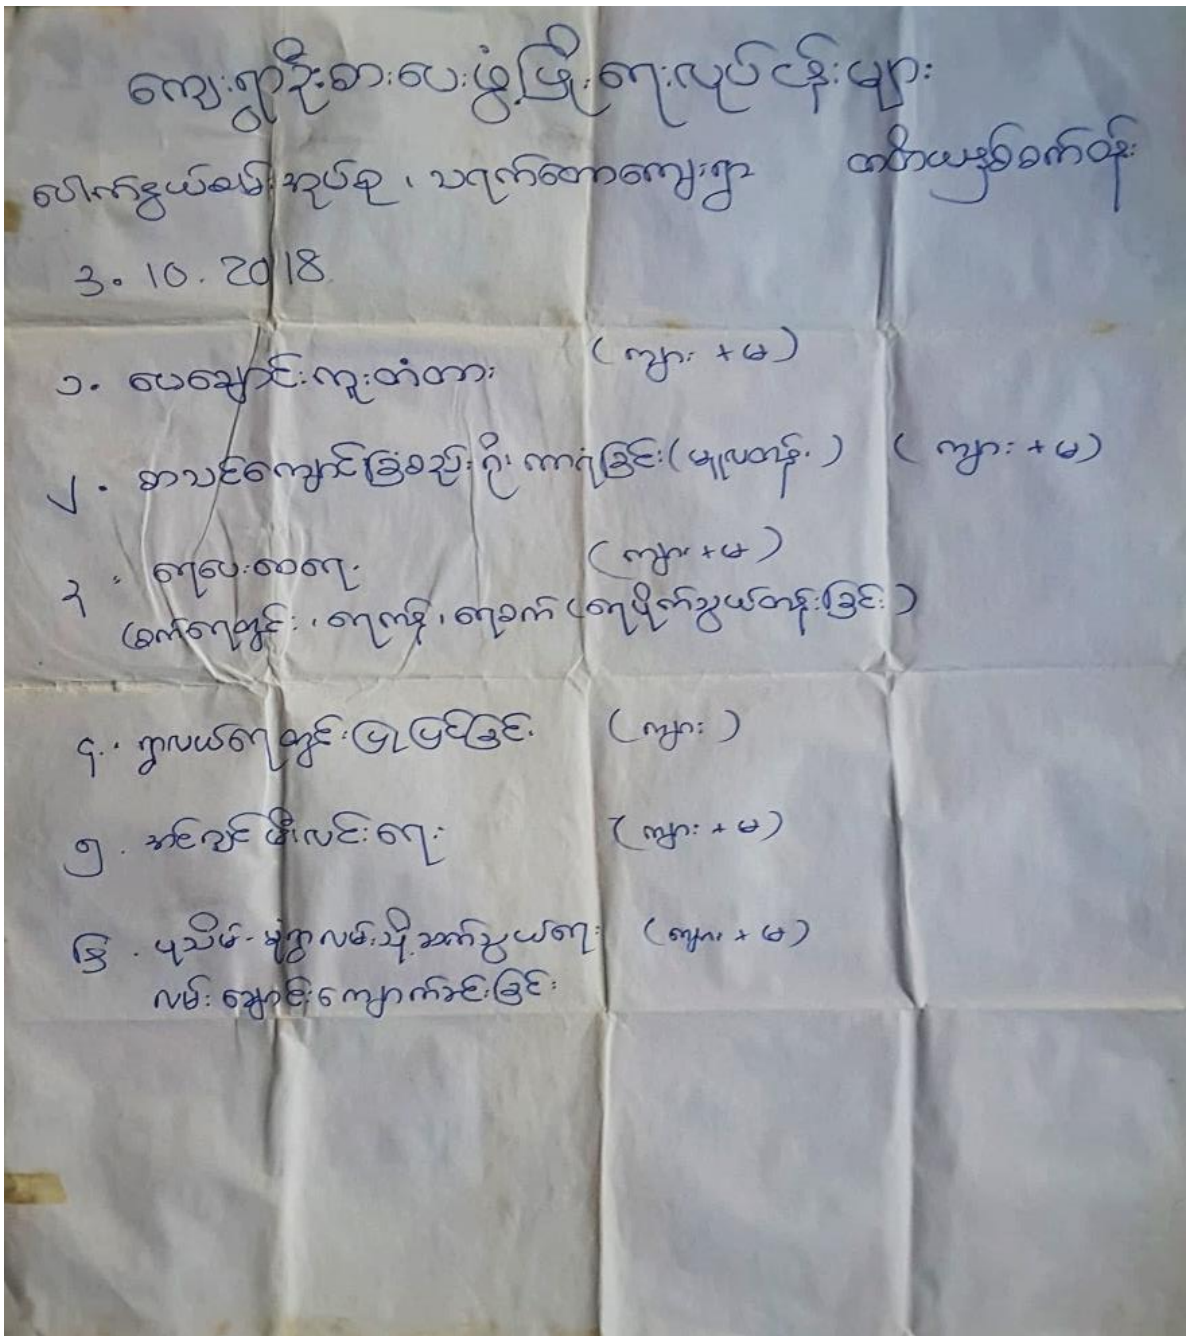 ကျေးရွာဦးစားပေးဖွံ့ဖြိုးရေးလုပ်ငန်းများ
ပေါက်နွယ်စမ်းအုပ်စု၊ သရက်တောကျေးရွာ တတိယနှစ်စက်ဝန်း
3.10.2018
၁. ပေချောင်းကူးတံတား (ကျား + မ)
၂. စာသင်ကျောင်းခြံစည်းရိုးကာရံခြင်း (မူလတန်း) (ကျား + မ)
၃. ရေပေးဝေရေး (ကျား + မ)
(စက်ရေတွင်း၊ ရေကန်၊ ရေစက် (ရေပိုက်သွယ်တန်းခြင်း)
၄. ရွာလယ်ရေတွင်းပြုပြင်ခြင်း (ကျား)
၅. အင်ဂျင်မီးလင်းရေး (ကျား + မ)
၆. ပုသိမ်-မုံရွာလမ်းသို့ဆက်သွယ်ရေး (ကျား + မ)
လမ်းချောင်းကျောက်ခင်းခြင်း